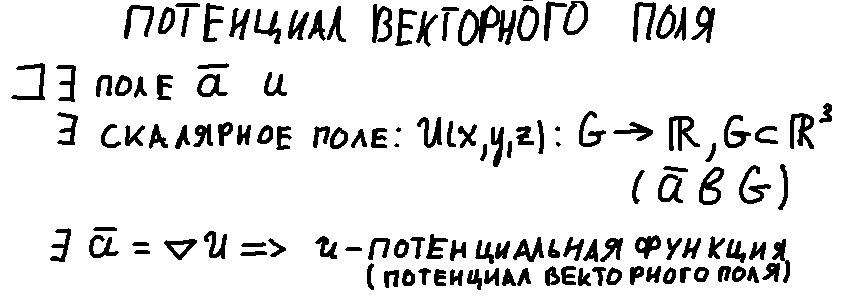 ПОТЕНЦИАЛ ВЕКТОРНОГО ПОЛЯ
⊐ ∃ ПОЛЕ a̅ и
∃ СКАЛЯРНОЕ ПОЛЕ: U(x,y,z): G → ℝ, G ⊂ ℝ³
(a̅ в G)
∃ a̅ = ▽U => u - ПОТЕНЦИАЛЬНАЯ ФУНКЦИЯ
(ПОТЕНЦИАЛ ВЕКТОРНОГО ПОЛЯ)